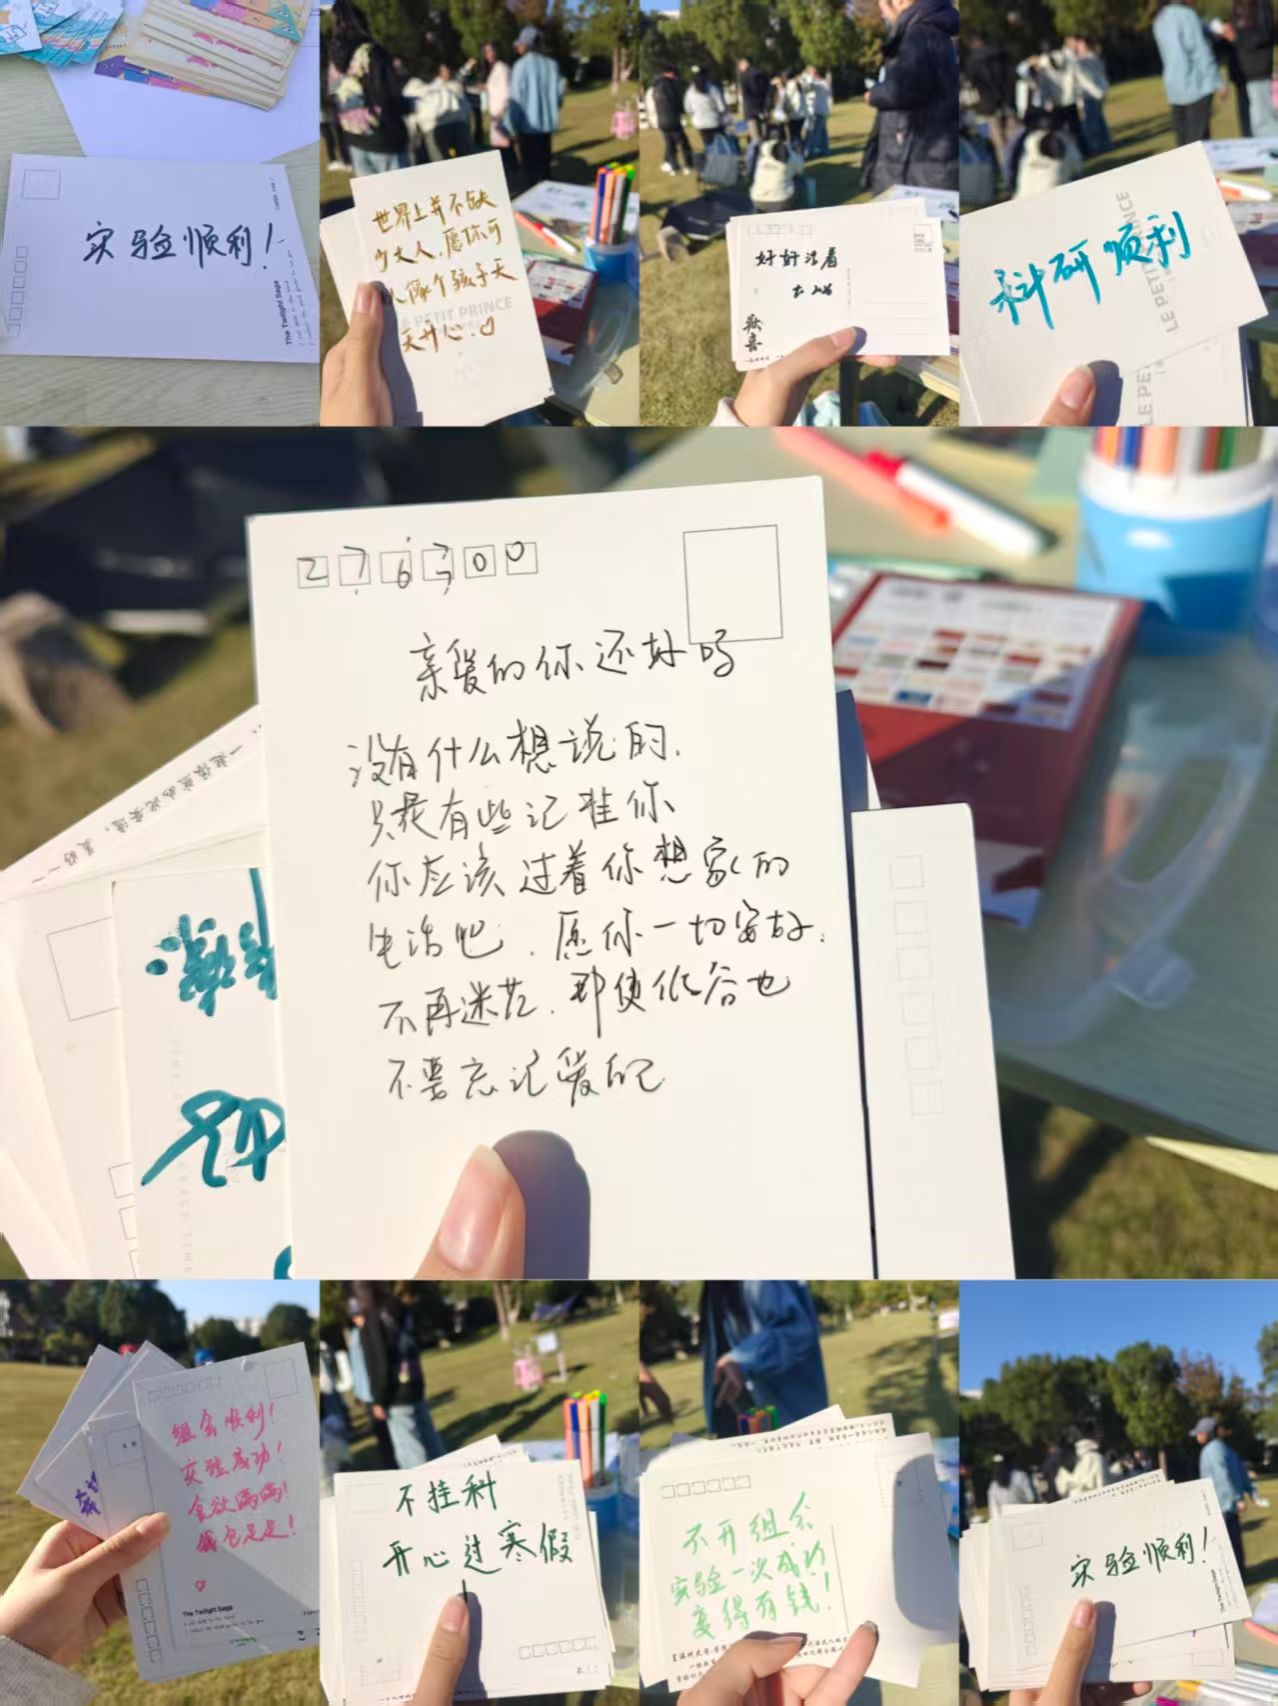 实验顺利!
The Twilight Saga
世界上并不缺
少大人,愿你可
以像个孩子天
天开心.♡
LE PETIT PRINCE
好好活着
欢喜
科研顺利
LE PETIT PRINCE
LE PE
276300
亲爱的你还好吗
没有什么想说的.
只是有些记挂你
你应该过着你想象的
生活吧.愿你一切安好.
不再迷茫.即使低谷也
不要忘记爱自己
组会顺利!
实验成功!
食欲满满!
钱包足足!
The Twilight Saga
不挂科
开心过寒假
不开组会
实验一次成功
变得有钱!
实验顺利!
The Twilight Saga